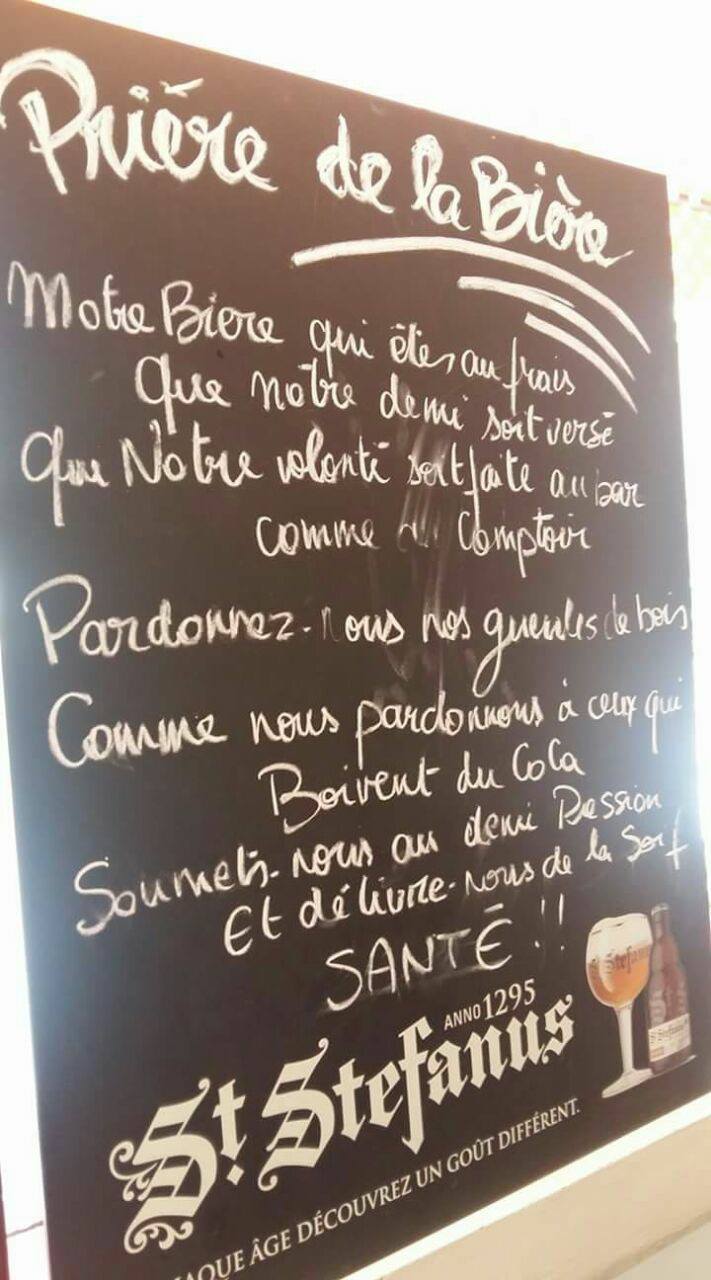 Prière de la Bière
Notre Biere qui êtes au frais
Que nôtre demi soit versé
Que Notre volonté soit faite au bar
comme au Comptoir
Pardonnez-nous nos gueules de bois
Comme nous pardonnons à ceux qui
Boivent du CoCa
Soumets-nous au demi Pression
Et délivre-nous de la Soif
SANTÉ !!
ANNO 1295
St. Stefanus
AQUE ÂGE DÉCOUVREZ UN GOÛT DIFFÉRENT.